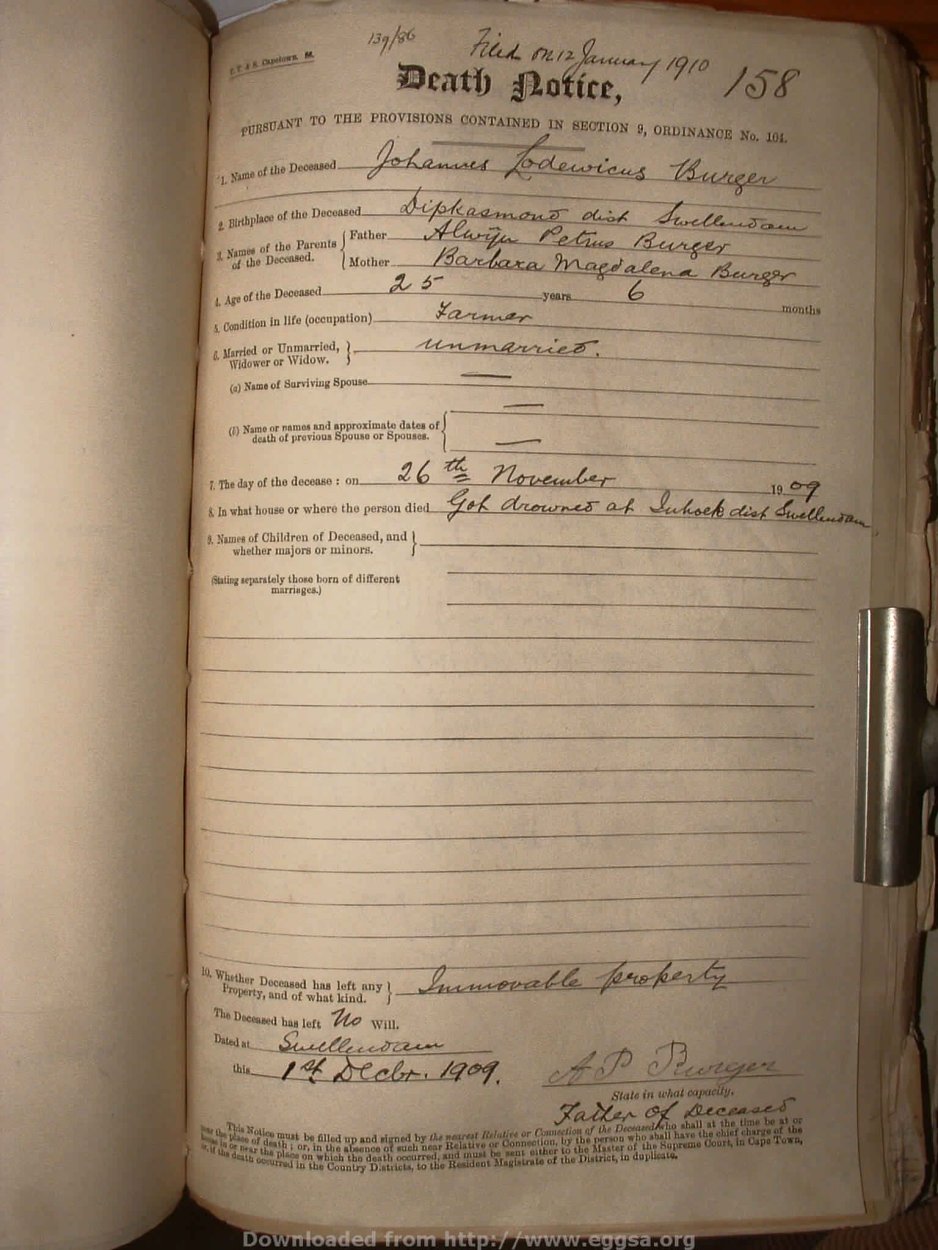 139/86
Filed on 12 January 1910
158
T. T. & S. Capetown.
Death Notice,
PURSUANT TO THE PROVISIONS CONTAINED IN SECTION 9, ORDINANCE No. 104.
1. Name of the Deceased Johannes Lodewicus Burger
2. Birthplace of the Deceased Dipkasmond dist Swellendam
3. Names of the Parents of the Deceased. Father Alwijn Petrus Burger
Mother Barbara Magdalena Burger
4. Age of the Deceased 25 years 6 months
5. Condition in life (occupation) Farmer
6. Married or Unmarried, Widower or Widow. unmarried.
(a) Name of Surviving Spouse —
(b) Name or names and approximate dates of —
death of previous Spouse or Spouses. —
7. The day of the decease : on 26th November 1909
8. In what house or where the person died Got drowned at dist Swellendam
9. Names of Children of Deceased, and
whether majors or minors.
(Stating separately those born of different
marriages.)
10. Whether Deceased has left any
Property, and of what kind. Immovable property
The Deceased has left No Will.
Dated at Swellendam
this 1st Decbr. 1909. A P Burger
State in what capacity.
Father of Deceased
This Notice must be filled up and signed by the nearest Relative or Connection of the Deceased who shall at the time be at or
near the place of death ; or, in the absence of such near Relative or Connection, by the person who shall have the chief charge of the
house in or near the place on which the death occurred, and must be sent either to the Master of the Supreme Court, in Cape Town,
or, if the death occurred in the Country Districts, to the Resident Magistrate of the District, in duplicate.
Downloaded from http://www.eggsa.org